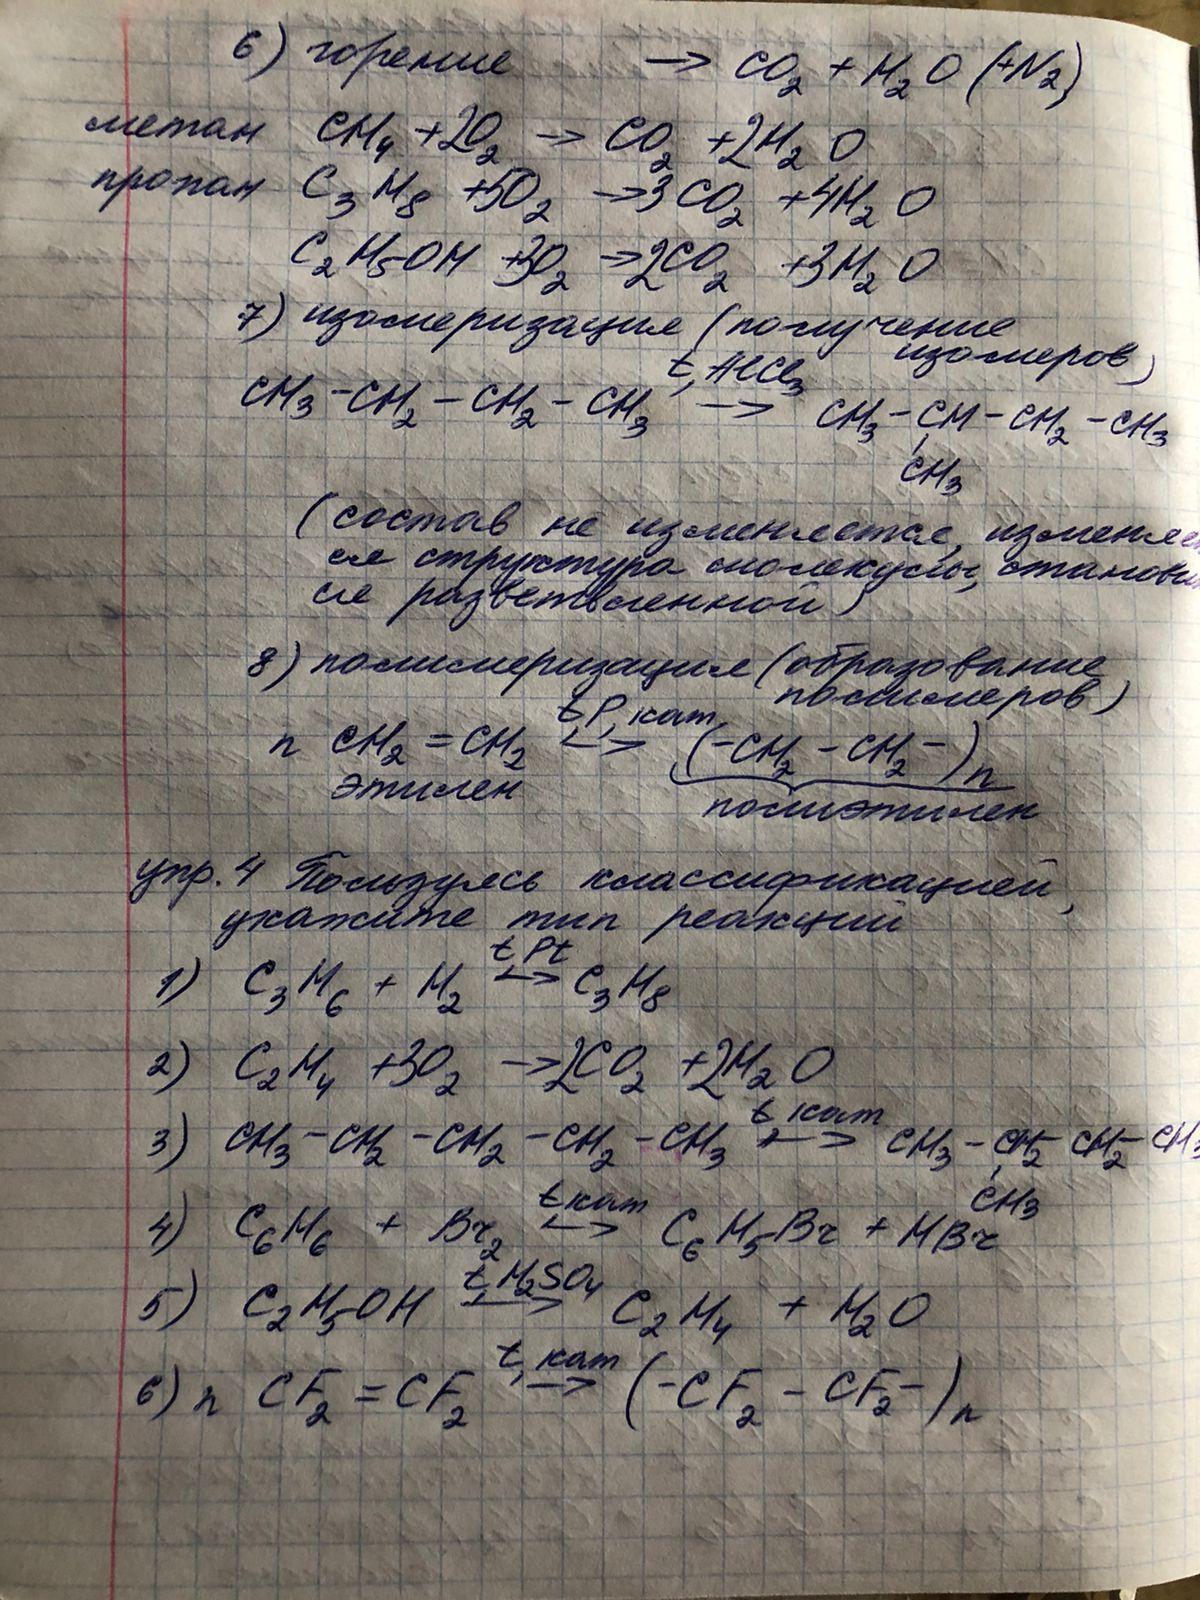 6) горение → CO₂ + H₂O (+N₂)
метан CH₄ + 2O₂ → CO₂ + 2H₂O
пропан C₃H₈ + 5O₂ → 3CO₂ + 4H₂O
C₂H₅OH + 3O₂ → 2CO₂ + 3H₂O
7) изомеризация (получение
изомеров)
t, AlCl₃
CH₃ – CH₂ – CH₂ – CH₃ → CH₃ – CH – CH₂ – CH₃
CH₃
(состав не изменяется, изменяет
ся структура молекулы, станови
ся разветвленной)
8) полимеризация (образование
полимеров)
t P, кат
n CH₂ = CH₂ ⟷ (– CH₂ – CH₂ –)n
этилен полиэтилен
упр. 4 Пользуясь классификацией,
укажите тип реакций
t Pt
1) C₃H₆ + H₂ ⟷ C₃H₈
2) C₂H₄ + 3O₂ → 2CO₂ + 2H₂O
t кат
3) CH₃ – CH₂ – CH₂ – CH₂ – CH₃ ⟷ CH₃ – CH₂ – CH₂ – CH₃
CH₃
t кат
4) C₆H₆ + Br₂ ⟷ C₆H₅Br + HBr
t, H₂SO₄
5) C₂H₅OH → C₂H₄ + H₂O
t, кат
6) n CF₂ = CF₂ → (– CF₂ – CF₂ –)n